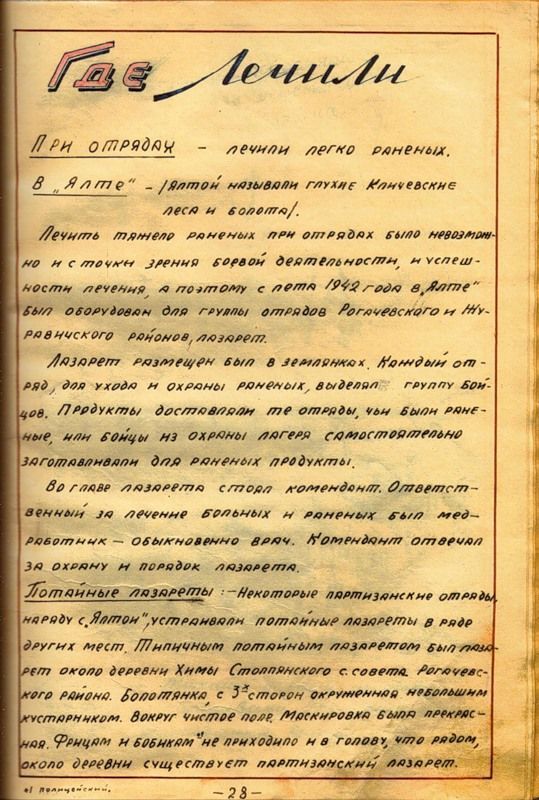 Где Лечили
При отрядах – лечили легко раненых.
В „Ялте" – /Ялтой называли глухие Кличевские
леса и болота/.
Лечить тяжело раненых при отрядах было невозмож-
но и с точки зрения боевой деятельности, и успеш-
ности лечения, а поэтому с лета 1942 года в „Ялте"
был оборудован для группы отрядов Рогачевского и Жу-
равичского районов, лазарет.
Лазарет размещен был в землянках. Каждый от-
ряд, для ухода и охраны раненых, выделял группу бой-
цов. Продукты доставляли те отряды, чьи были ране-
ные, или бойцы из охраны лагеря самостоятельно
заготавливали для раненых продукты.
Во главе лазарета стоял комендант. Ответст-
венный за лечение больных и раненых был мед-
работник – обыкновенно врач. Комендант отвечал
за охрану и порядок лазарета.
Потайные лазареты :– Некоторые партизанские отряды,
наряду с „Ялтой", устраивали потайные лазареты в ряде
других мест. Типичным потайным лазаретом был лаза-
рет около деревни Химы Столпянского с. совета. Рогачевс-
кого района. Болотянка, с 3х сторон окруженная небольшим
кустарником. Вокруг чистое поле. Маскировка была прекрас-
ная. Фрицам и бобикам*/ не приходило и в голову, что рядом,
около деревни существует партизанский лазарет.
*/ полицейский.
– 28 –